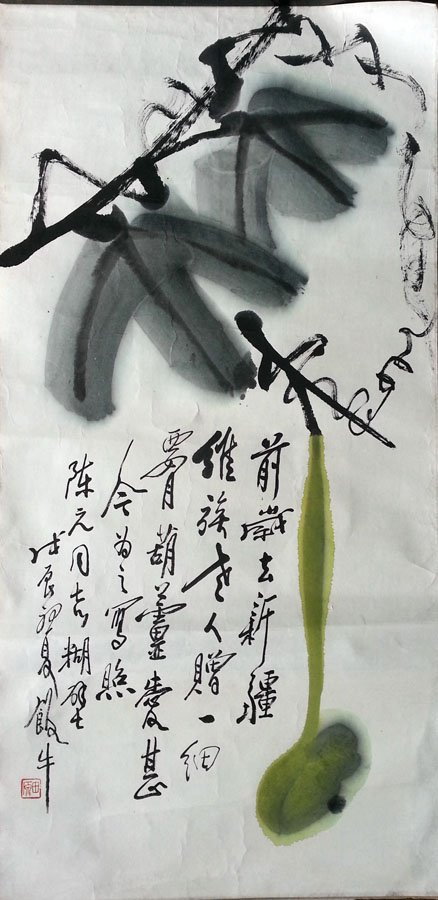 前歲去新疆
維族老人贈一細
腰葫蘆愛甚
今为之寫照
陈元同志糊壁
戊辰初夏飯牛